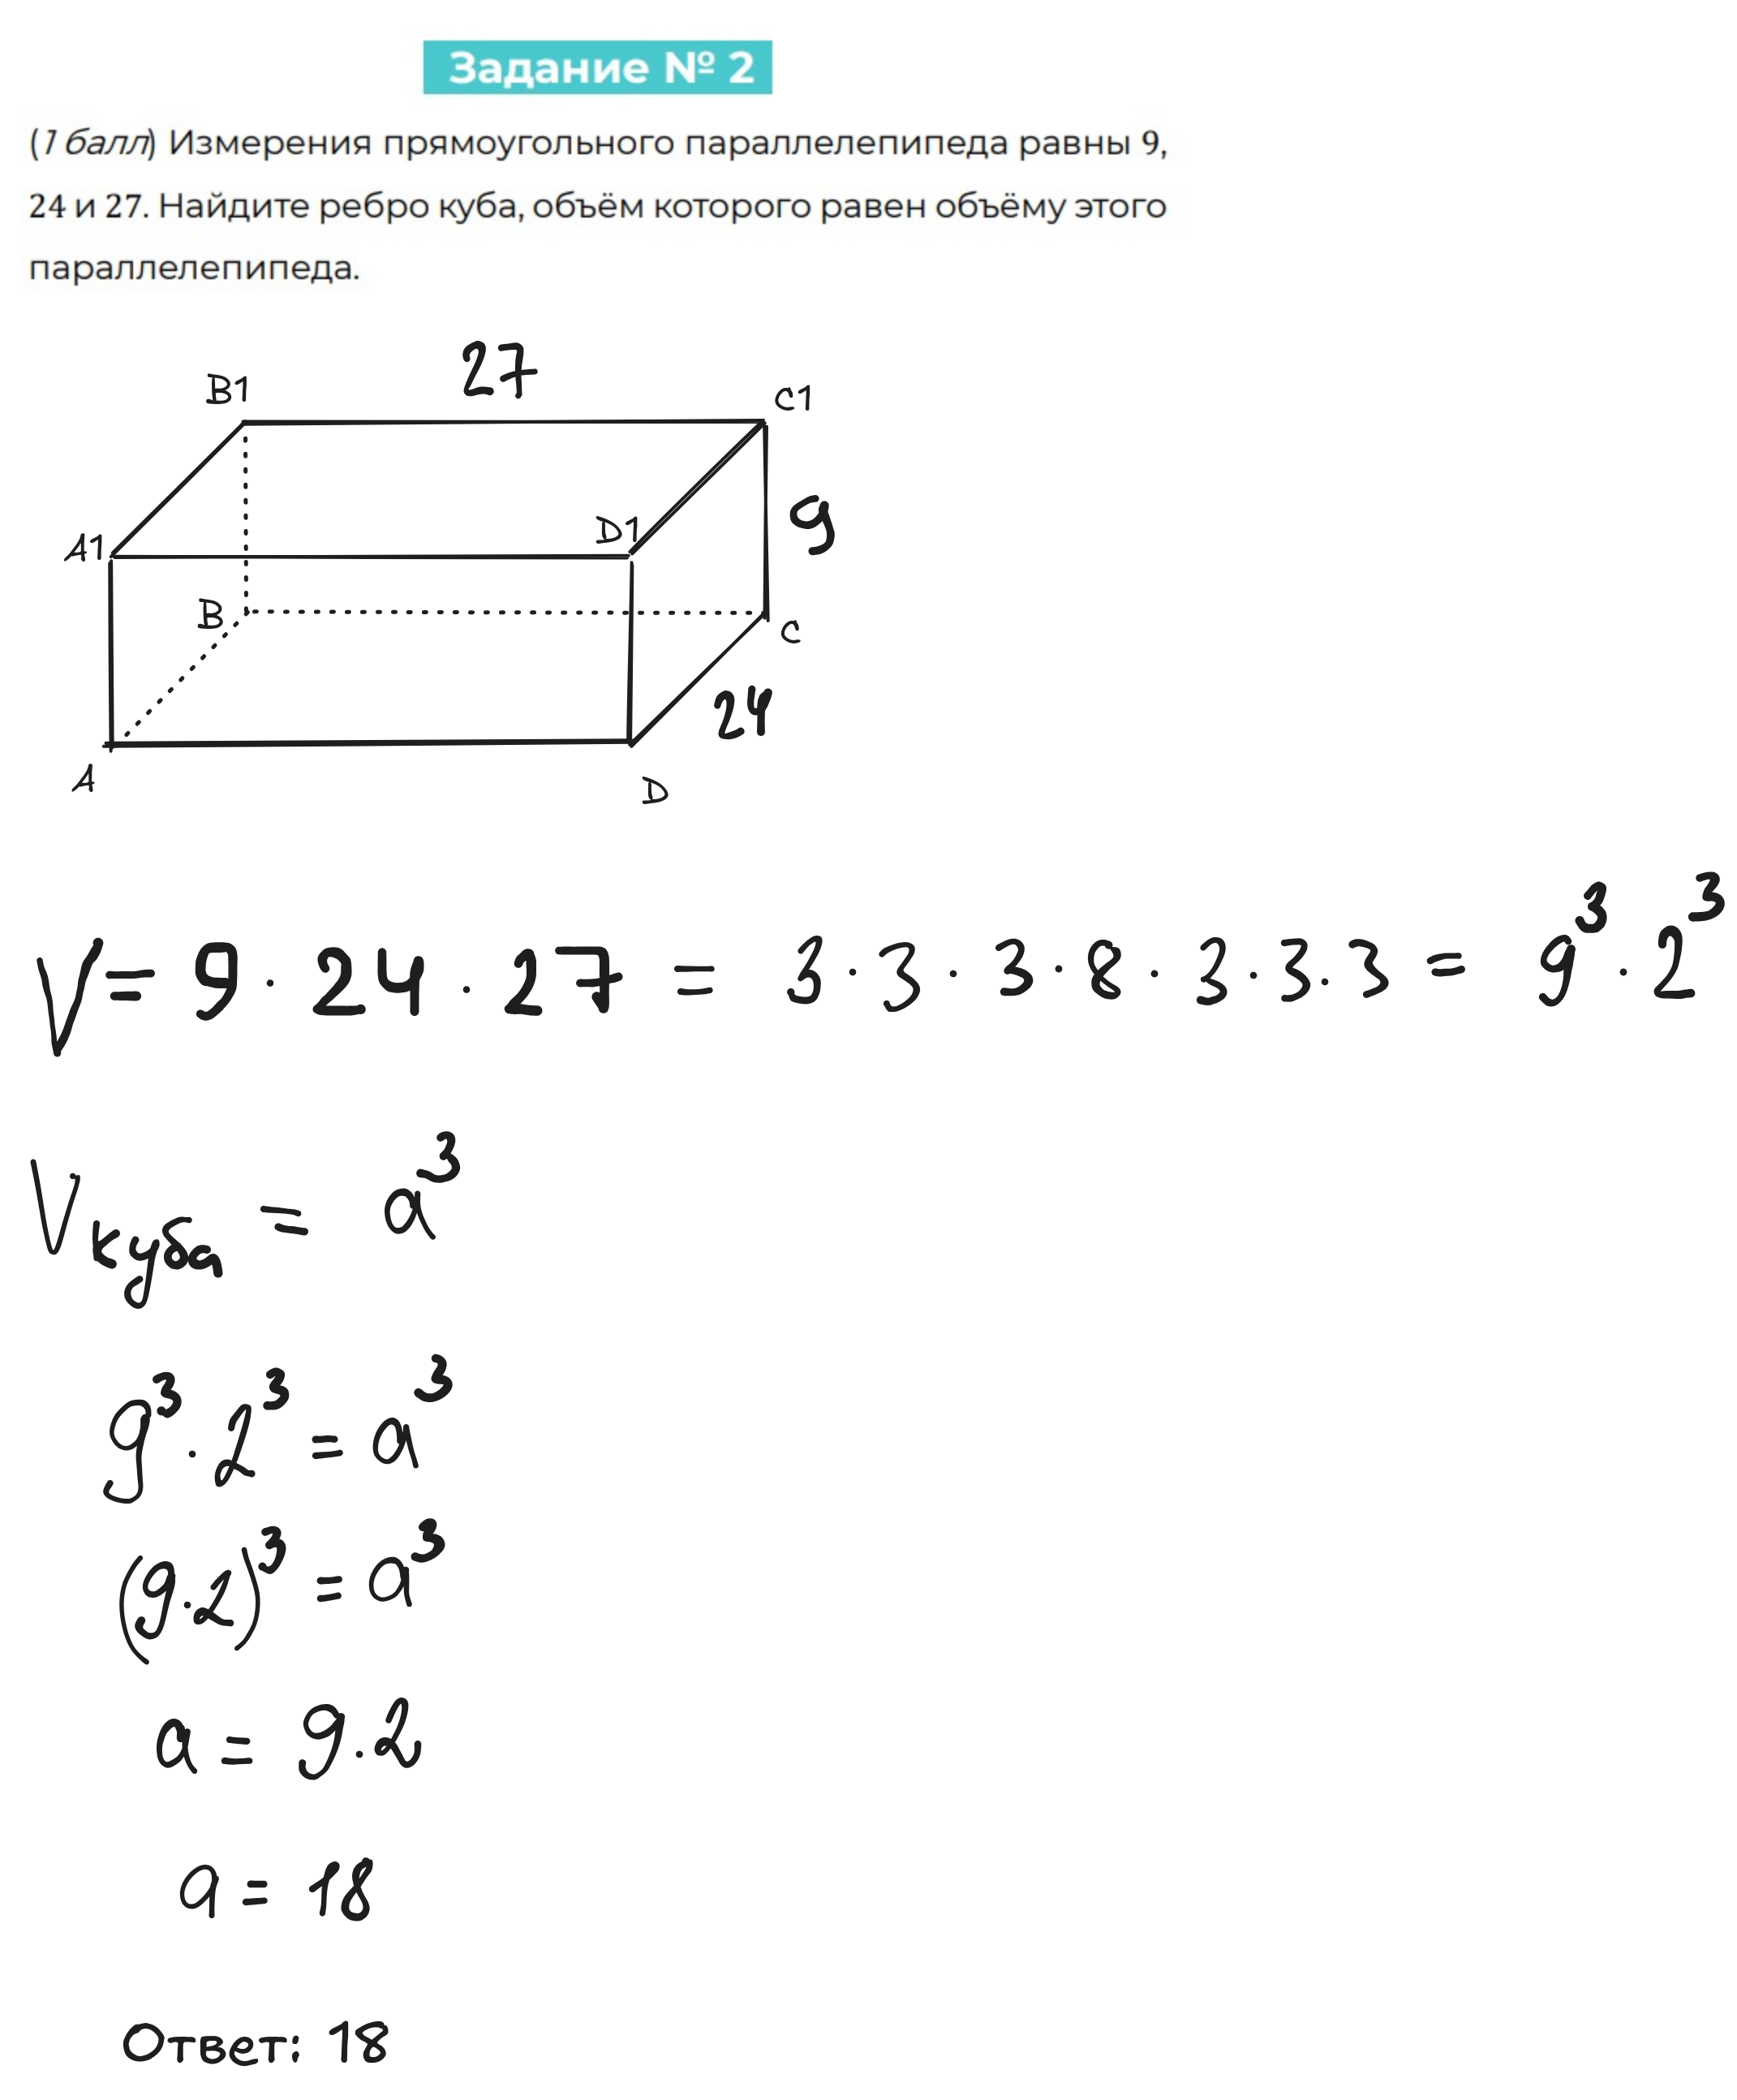 Задание № 2
(1 балл) Измерения прямоугольного параллелепипеда равны 9,
24 и 27. Найдите ребро куба, объём которого равен объёму этого
параллелепипеда.
27
B1
C1
9
A1
D1
B
C
24
A
D
V = 9 · 24 · 27 = 3 · 3 · 3 · 8 · 3 · 3 · 3 = 9³ · 2³
Vкуба = a³
9³ · 2³ = a³
(9·2)³ = a³
a = 9·2
a = 18
Ответ: 18